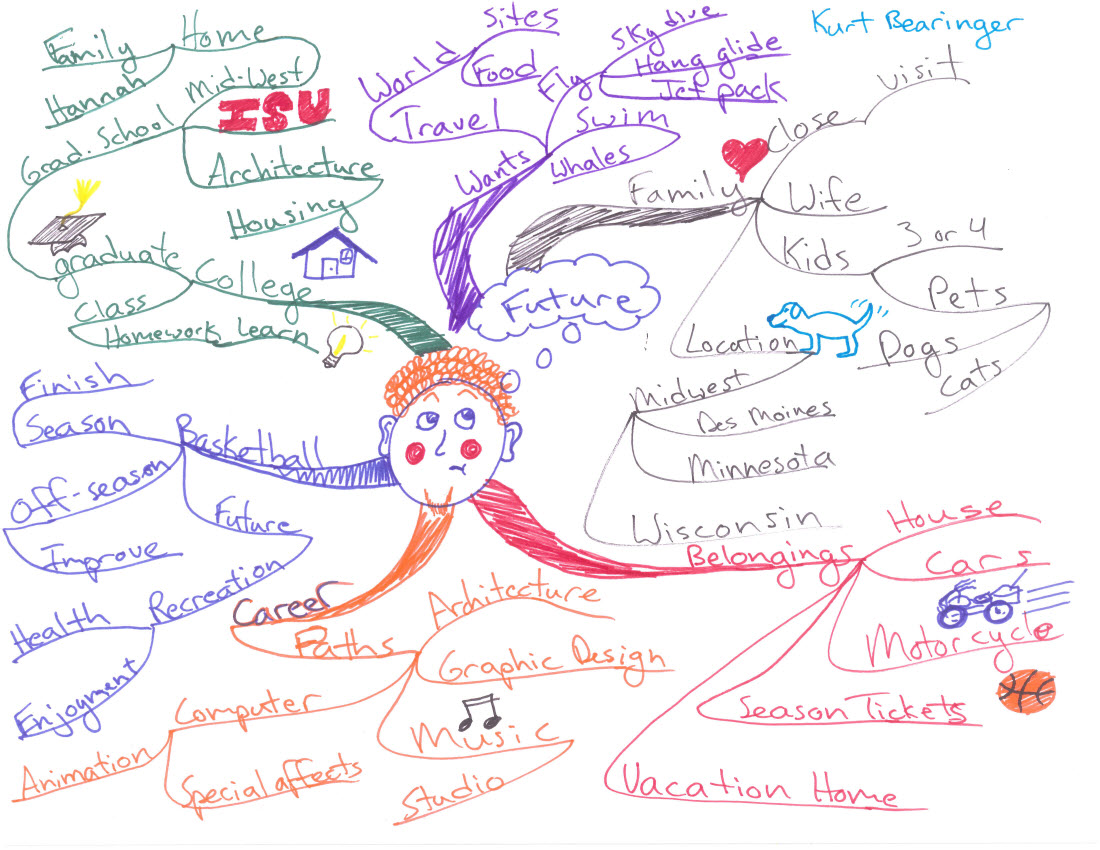 Kurt Bearinger
Future
College
graduate
Grad. School
Mid-West
Home
Family
Hannah
ISU
Architecture
Housing
Class
Homework Learn
Wants
Travel
World
Sites
Food
Fly
Sky dive
Hang glide
Jet pack
Swim
Whales
Family
Close
visit
Wife
Kids
3 or 4
Pets
Dogs
Cats
Location
Midwest
Des Moines
Minnesota
Wisconsin
Basketball
Season
Finish
Off-season
Improve
Future
Recreation
Health
Enjoyment
Career
Paths
Architecture
Graphic Design
Music
Studio
Computer
Animation
Special affects
Belongings
House
Cars
Motorcycle
Season Tickets
Vacation Home